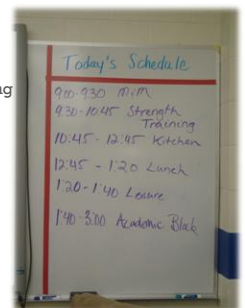 ng
Today's Schedule
9:00-9:30 M+M
9:30-10:45 Strength
Training
10:45 - 12:45 Kitchen
12:45 - 1:20 Lunch
1:20 - 1:40 Leisure
1:40-3:00 Academic Block